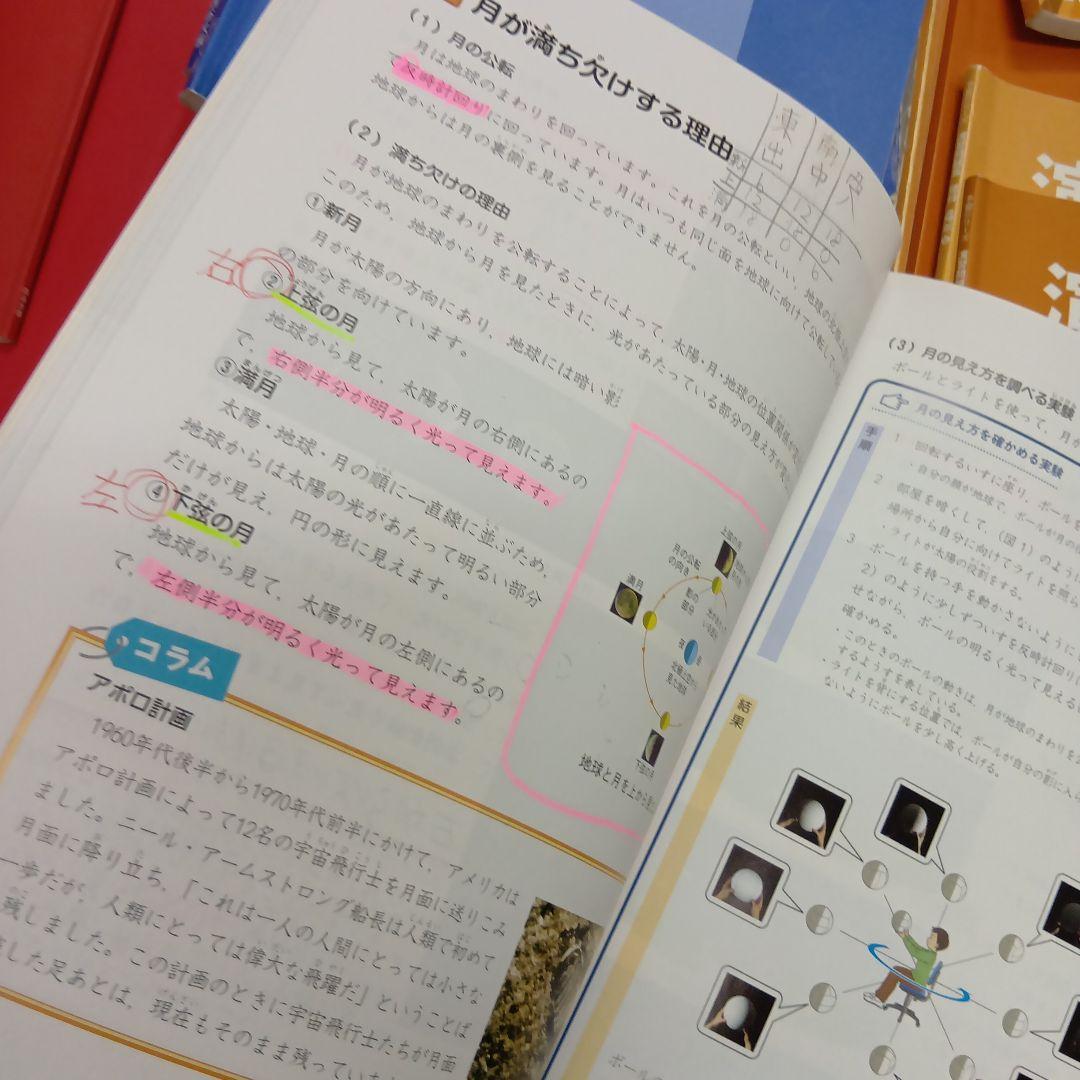 月が満ち欠けする理由
(1) 月の公転
月は地球のまわりを回っています。これを月の公転といい、地球の北極
て反時計回りに回っています。月はいつも同じ面を地球に向けて公転して
地球からは月の裏側を見ることができません。
(2) 満ち欠けの理由
月が地球のまわりを公転することによって、太陽・月・地球の位置関係が
このため、地球から月を見たときに、光があたっている部分の見え方が
①新月
月が太陽の方向にあり、地球には暗い影
の部分を向けています。
右
②上弦の月
地球から見て、太陽が月の右側にあるの
で、右側半分が明るく光って見えます。
③満月
太陽・地球・月の順に一直線に並ぶため、
地球からは太陽の光があたって明るい部分
だけが見え、円の形に見えます。
左
④下弦の月
地球から見て、太陽が月の左側にあるの
で、左側半分が明るく光って見えます。
東 南
出 中 穴
6 12 18
12 18 0
18 0 6
上弦の月
月の公転
の向き
満月
影の
部分
夜
下弦の月
地球と月を上から
コラム
アポロ計画
1960年代後半から1970年代前半にかけて、アメリカは
アポロ計画によって12名の宇宙飛行士を月面に送りこみ
ました。ニール・アームストロング船長は人類で初めて
月面に降り立ち、「これは一人の人間にとっては小さな
一歩だが、人類にとっては偉大な飛躍だ」ということば
残しました。この計画のときに宇宙飛行士たちが月面
した足あとは、現在もそのまま残ってい
(3) 月の見え方を調べる実験
ボールとライトを使って、月が
月の見え方を確かめる実験
手順
1 回転するいすに座り、ボールを
・自分の顔が地球で、ボールが月の
2 部屋を暗くして、(図1)のように
場所から自分に向けてライトを照ら
・ライトが太陽の役割をする。
3 ボールを持つ手を動かさないように
2)のように少しずついすを反時計回りに
せながら、ボールの明るく光って見える
確かめる。
・このときのボールの動きは、月が地球のまわりを
するようすを表している。
・ライトを背にする位置では、ボールが自分の影に入ら
ないようにボールを少し高く上げる。
結果
ボールの
演
演